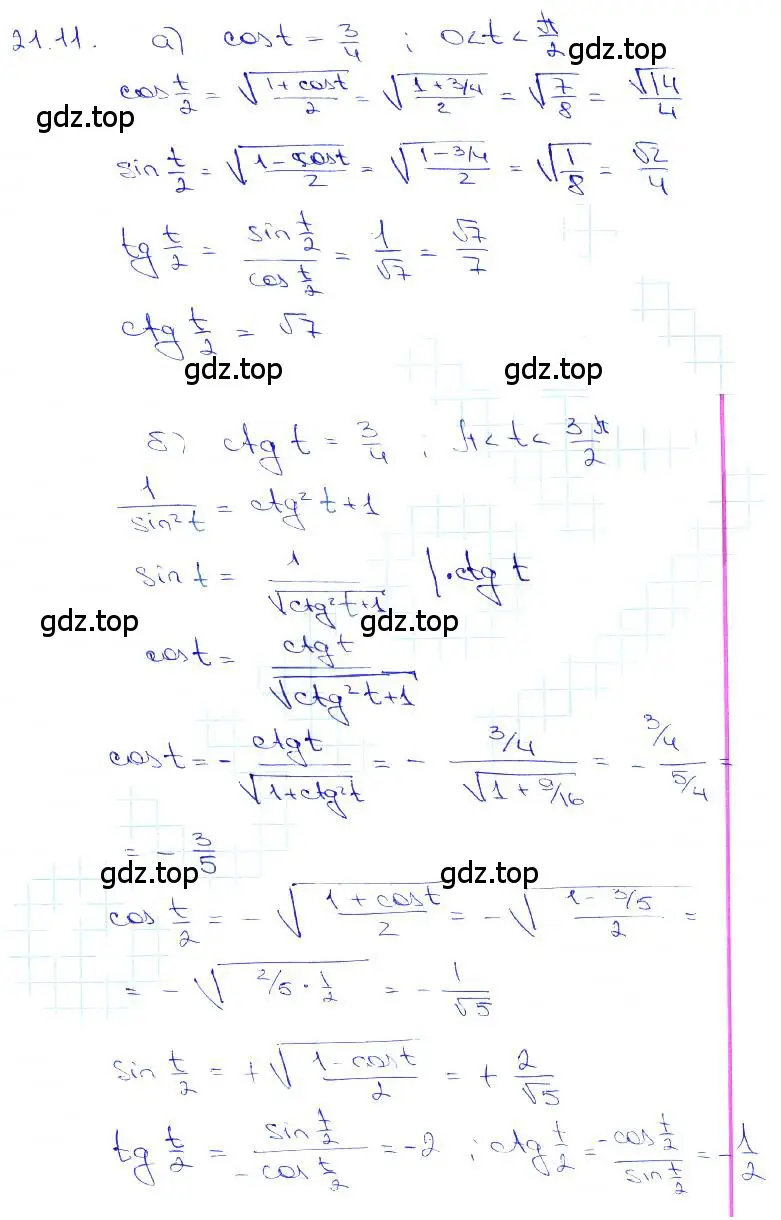 21.11. а) cos t = 3/4 ; 0 < t < π/2
gdz.top
cos t/2 = √((1 + cos t)/2) = √((1 + 3/4)/2) = √(7/8) = √14/4
gdz.top
sin t/2 = √((1 - cos t)/2) = √((1 - 3/4)/2) = √(1/8) = √2/4
tg t/2 = (sin t/2)/(cos t/2) = 1/√7 = √7/7
ctg t/2 = √7
gdz.top gdz.top
б) ctg t = 3/4 ; π < t < 3π/2
1/(sin² t) = ctg² t + 1
sin t = 1/√(ctg² t + 1) | · ctg t
gdz.top gdz.top
cos t = ctg t/√(ctg² t + 1)
cos t = - ctg t/√(1 + ctg² t) = - (3/4)/√(1 + 9/16) = - (3/4)/(5/4) =
= - 3/5
gdz.top gdz.top
cos t/2 = - √((1 + cos t)/2) = - √((1 - 3/5)/2) =
= - √(2/5 · 1/2) = - 1/√5
sin t/2 = + √((1 - cos t)/2) = + 2/√5
tg t/2 = (sin t/2)/(- cos t/2) = -2 ; ctg t/2 = (- cos t/2)/(sin t/2) = - 1/2